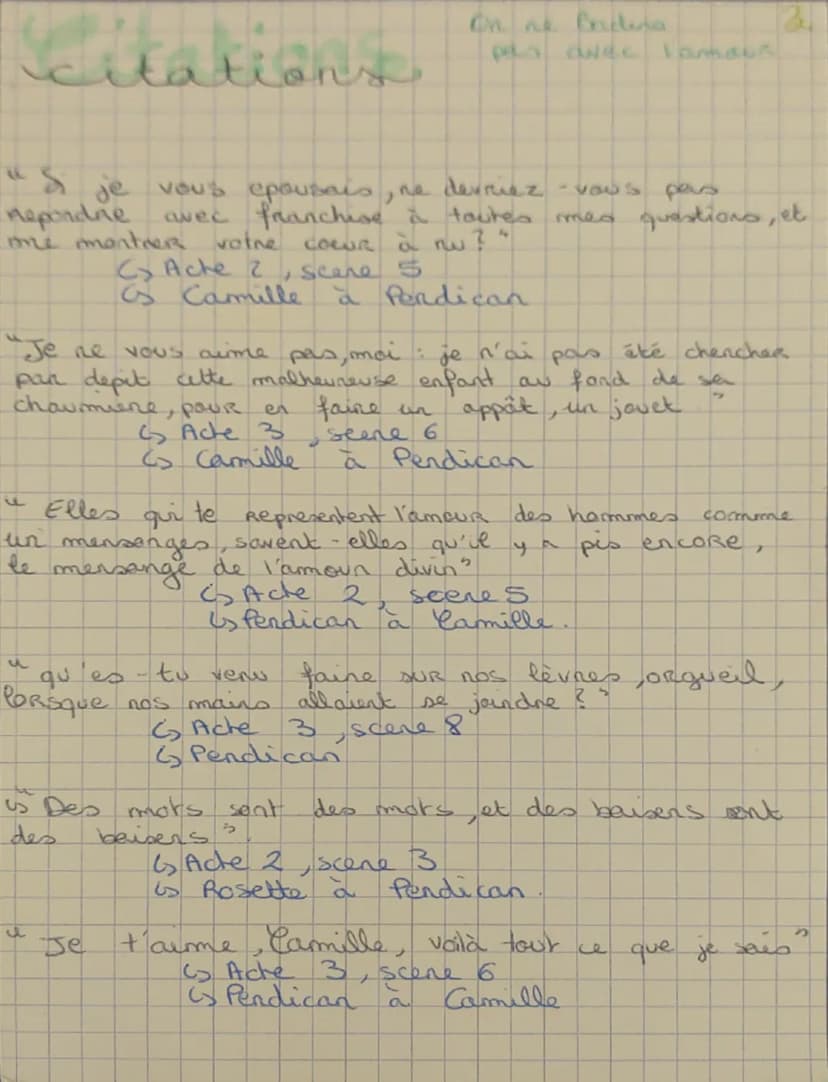 Citations
On ne badine
pas avec l'amour
2
" Si je vous epousais, ne devriez-vous pas
repondre avec franchise à toutes mes questions, et
me montrer votre coeur à nu ? "
↳ Acte 2, scene 5
↳ Camille à Perdican
"Je ne vous aime pas, moi : je n'ai pas été chercher
par depit cette malheureuse enfant au fond de sa
chaumiere, pour en faire un appât, un jouet "
↳ Acte 3, scene 6
↳ Camille à Perdican
" Elles qui te representent l'amour des hommes comme
un mensonges, savent-elles qu'il y a pis encore,
le mensonge de l'amour divin"
↳ Acte 2, scene 5
↳ Perdican à Camille.
" qu'es-tu venu faire sur nos lèvres, orgueil,
lorsque nos mains allaient se joindre ? "
↳ Acte 3, scene 8
↳ Perdican
↳ " Des mots sont des mots, et des baisers sont
des baisers ".
↳ Acte 2, scene 3
↳ Rosette à Perdican.
" Je t'aime, Camille, voilà tout ce que je sais "
↳ Acte 3, scene 6
↳ Perdican à Camille